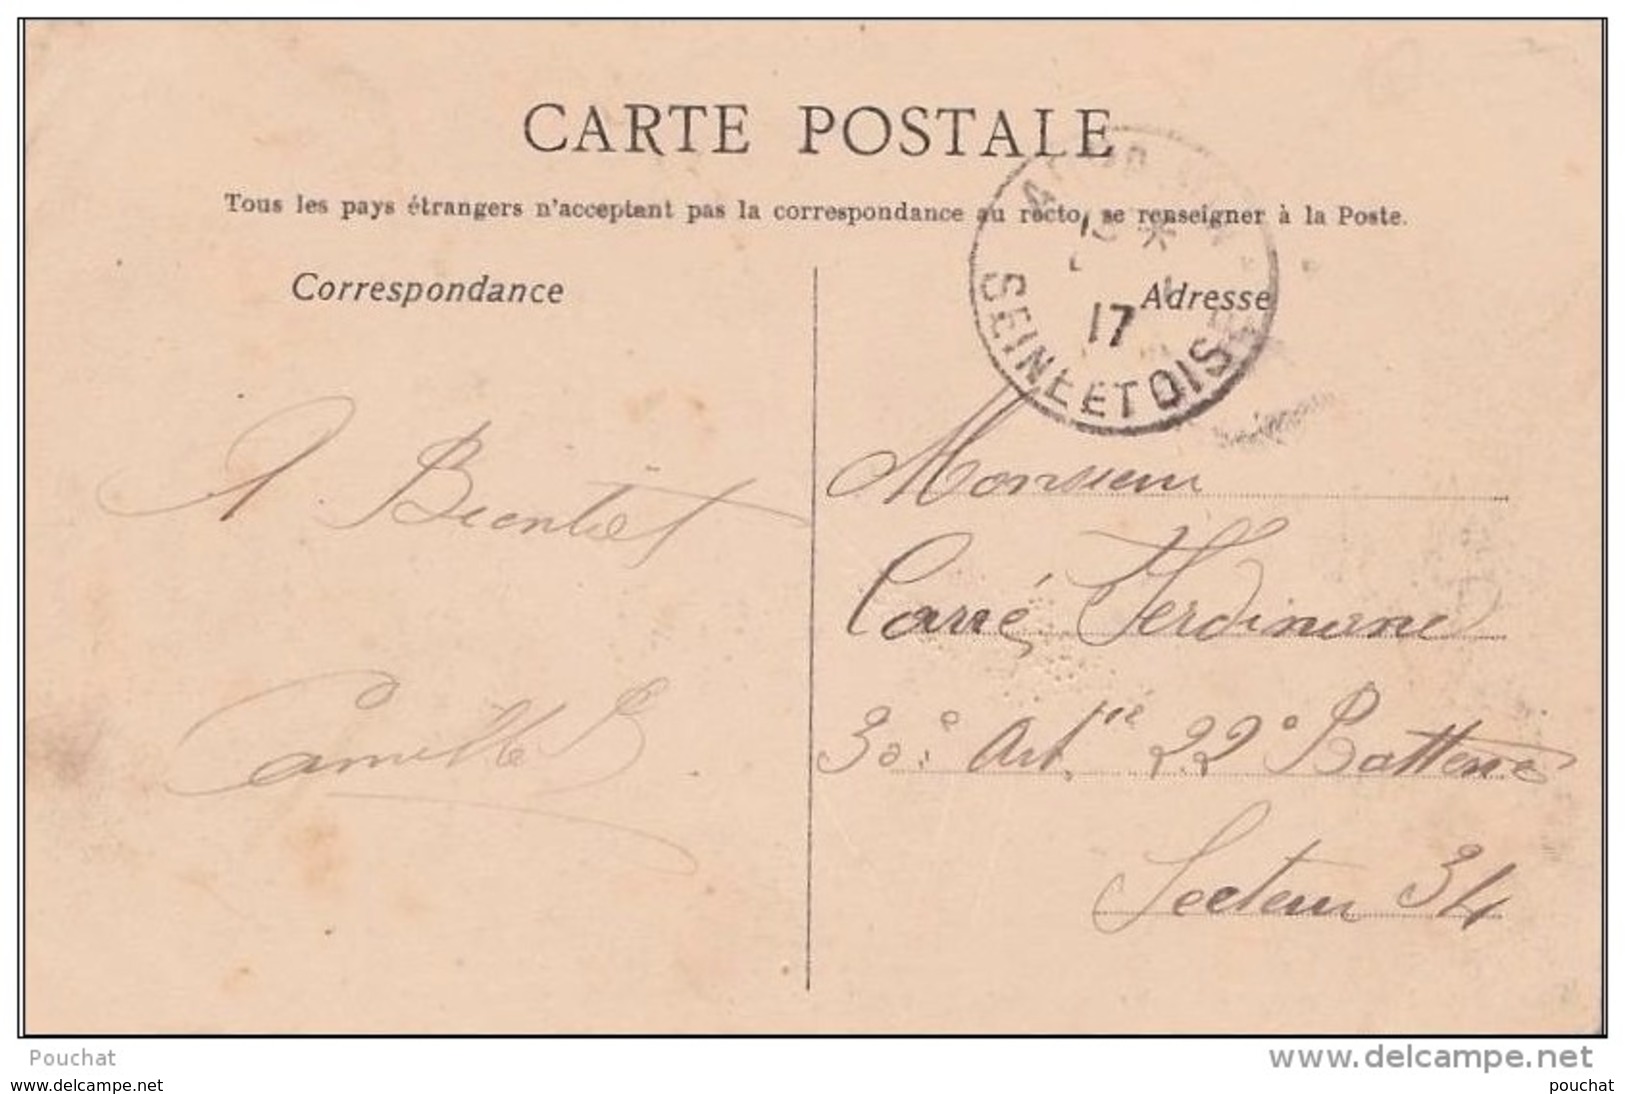 CARTE POSTALE
Tous les pays étrangers n'acceptent pas la correspondance au recto, se renseigner à la Poste.
Correspondance
Adresse
17
SEINE ET OISE
A Bientôt
Camille B
Monsieur
Carré Ferdinand
30e Artie 22e Batterie
Secteur 34
Pouchat
www.delcampe.net
www.delcampe.net
pouchat